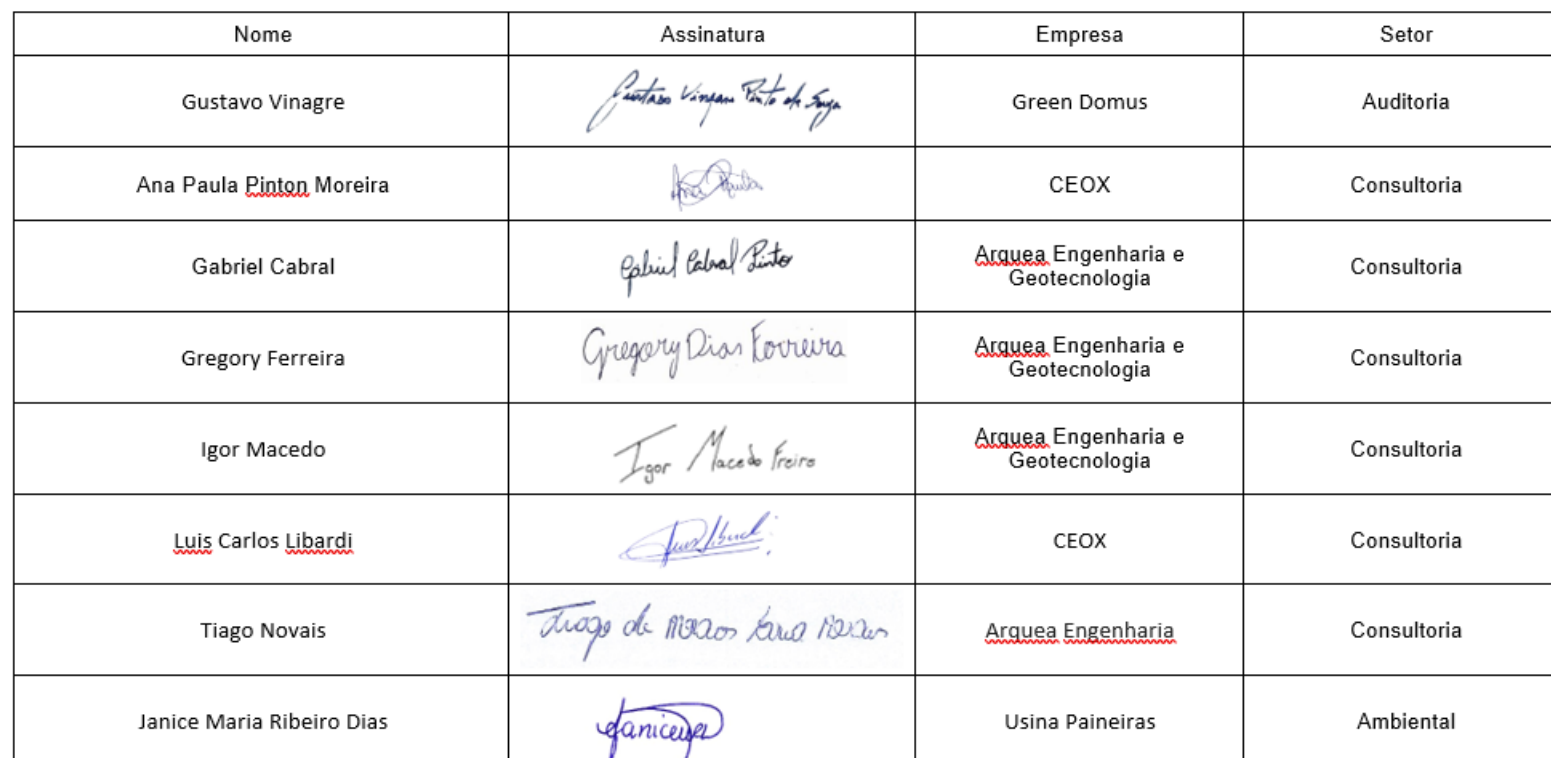 Nome Assinatura Empresa Setor
Gustavo Vinagre Gustavo Pinto de Green Domus Auditoria
Ana Paula Pinton Moreira Ana Paula CEOX Consultoria
Gabriel Cabral Gabriel Cabral Pinto Arquea Engenharia e
Geotecnologia Consultoria
Gregory Ferreira Gregory Dias Ferreira Arquea Engenharia e
Geotecnologia Consultoria
Igor Macedo Igor Macedo Freire Arquea Engenharia e
Geotecnologia Consultoria
Luis Carlos Libardi CEOX Consultoria
Tiago Novais Tiago de Arquea Engenharia Consultoria
Janice Maria Ribeiro Dias Usina Paineiras Ambiental